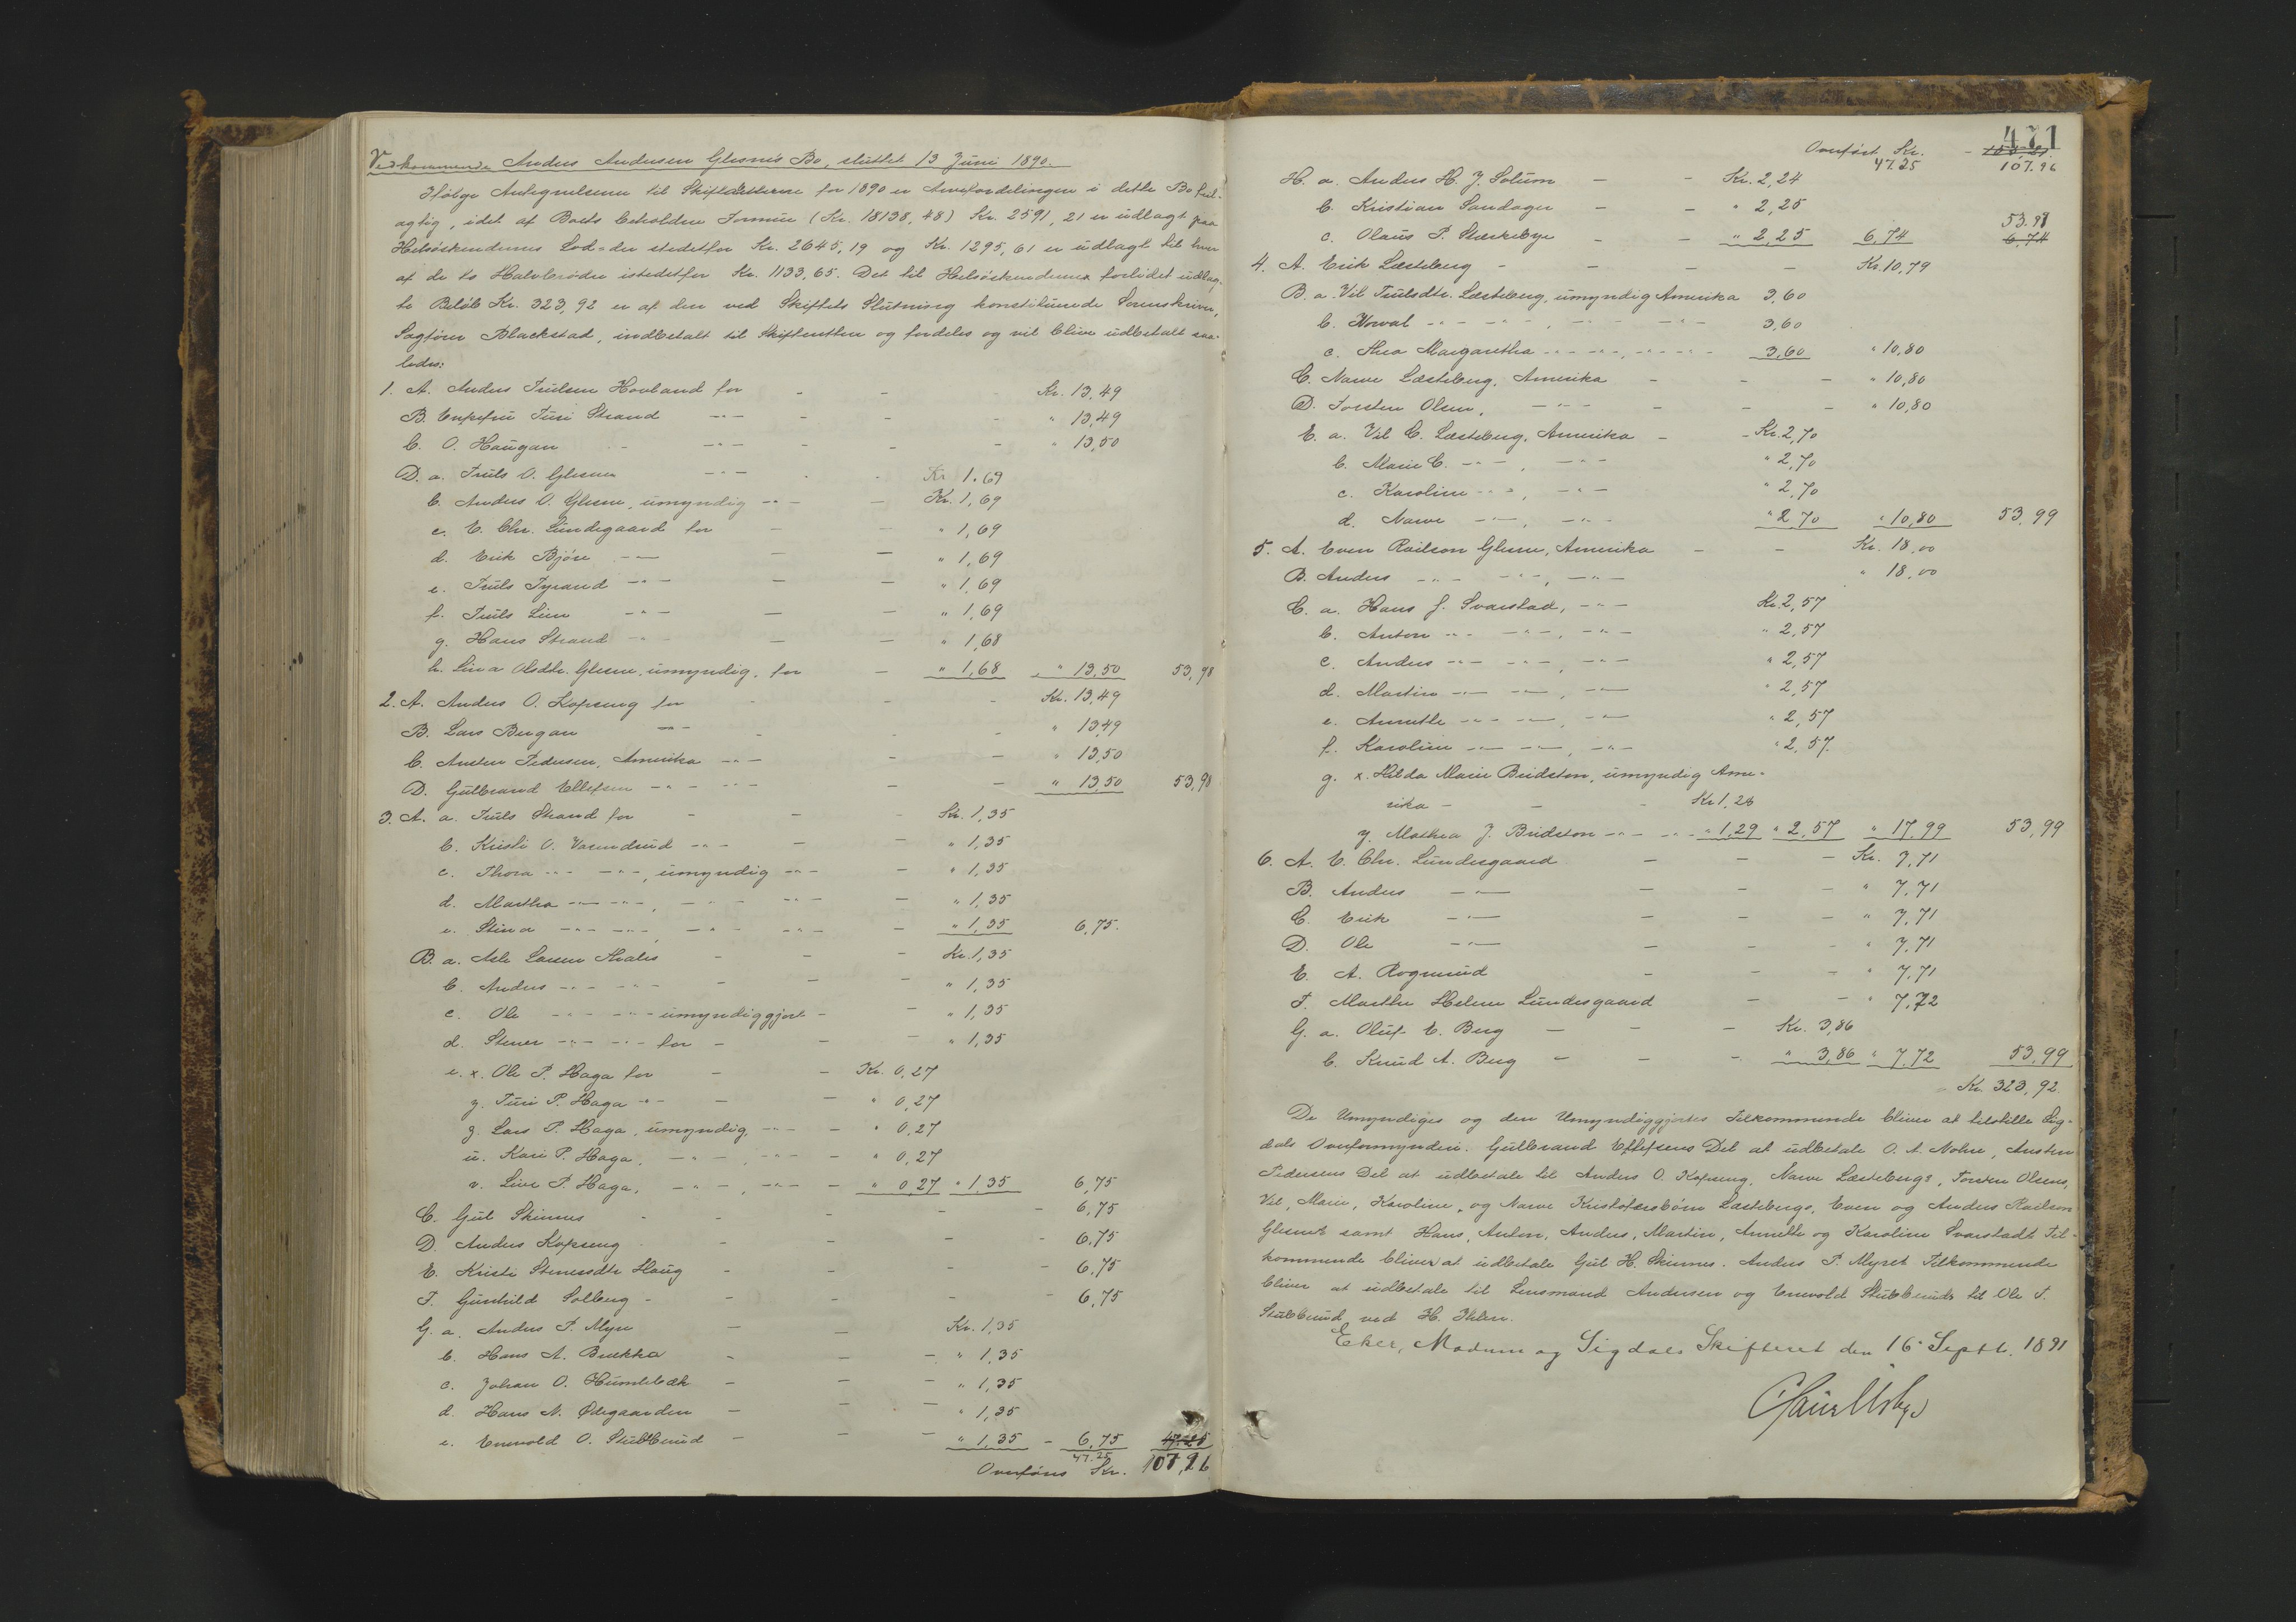 Vedkommende Anders Andersen Glesnes Bo, sluttet 13 Juni 1890.
Ifølge Antegnelserne til Skifteretterne for 1890 er Arvefordelingen i dette Bo feil-
agtig, idet af Boets beholdne Formue (Kr. 18138,48) Kr. 2591,21 er udlagt paa
Helsøskendernes Lod-der stedetfor Kr. 2645,19 og Kr. 1295,61 er udlagt til hver
af de to Halvbrødre istedetfor Kr. 1133,65. Det til Helsøskenderne forlidet udlag-
te Beløb Kr. 323,92 er af den ved Skiftets Slutning konstituerede Sorenskriver,
Sagfører Blackstad, indbetalt til Skifteretten og fordeles og vil blive udbetalt saa-
ledes:
1. A. Anders Trulsen Hovland for - - Kr. 13,49
B. Enkefru Turi Strand -"- - - " 13,49
C. O. Haugan -"- - - " 13,50
D. a. Truls O. Glesne -"- - Kr 1.69
b. Anders O. Glesne, umyndig -"- - Kr. 1,69
c. E. Chr. Lundesgaard for - - " 1,69
d. Erik Bjøre -"- - - " 1,69
e. Truls Tyrand -"- - - " 1,69
f. Truls Lien -"- - - " 1,69
g. Hans Strand -"- - - " 1,68
h. Lina Olsdtr. Glesne, umyndig, for - " 1,68 " 13,50 53,98
2. A. Anders O. Kopseng for - - - Kr. 13,49
B. Lars Bergan -"- - - " 13,49
C. Austen Pedersen, Amerika -"- - - " 13,50
D. Gulbrand Ellefsen -"- -"- - - " 13,50 53,98
3. A. a. Truls Strand for - - - Kr. 1,35
b. Kristi O. -"- - - " 1,35
c. Thora -"- -"-, umyndig -"- - " 1,35
d. Martha -"- -"-, -"- -"- - " 1,35
e. Stina -"- -"-, -"- -"- - " 1,35 6,75.
B. a. Asle Larsen - - - Kr. 1,35
b. Anders -"- -"- - - - " 1,35
c. Ole -"- -"- umyndiggjort - - " 1,35
d. Stener -"- -"- for - - - " 1,35
e. x. Ole P. Haga for - - Kr. 0,27
y. Turi P. Haga -"- - - " 0,27
z. Lars P. Haga, umyndig, -"- - " 0,27
u. Kari P. Haga, -"-, -"- - " 0,27
v. Live P. Haga, -"-, -"- - " 0,27 " 1,35 6,75
C. Gul Skinnes - - - - - 6,75
D. Anders Kopseng - - - - 6,75
E. Kristi Stenersdtr Haug - - - - 6,75
F. Gunhild Solberg - - - - - 6,75
G. a. Anders P. Myre - - Kr. 1,35
b. Hans A. Brekka - - - " 1,35
c. Johan O. Humlebæk - - - " 1,35
d. Hans N. Ødegaarden - - - " 1,35
e. Enevold O. Stubberud - - - " 1,35 - 6,75 47.25
47.25
Overføres Kr. 107,96
471
Overført Kr. - 
47.25 107.96
H. a. Anders H. J. Solum - - Kr. 2,24
b. Kristian Sandager - - " 2,25
53.98
c. Olaus P. Stærkebye - - " 2,25 6,74 6,74
4. A. Erik Læsteberg - - - - Kr. 10,79
B. a. Vil Trulsdtr. Læsteberg, umyndig Amerika 3,60
b. Norval -"- -"-, -"- -"- 3,60
c. Thea Margaretha -"- -"-, -"- -"- 3,60 " 10,80
C. Narve Læsteberg, Amerika - - - " 10,80
D. Torsten Olsen, -"- - - - " 10,80
E. a. Vil C. Læsteberg, Amerika - - Kr. 2,70
b. Marie C. -"-, -"- " 2,70
c. Karoline -"-, -"- " 2,70
d. Narve -"-, -"- " 2,70 " 10,80 53,99
5. A. Even Roilson Glesne, Amerika - - Kr. 18,00
B. Anders -"- -"-, -"- " 18,00
C. a. Hans J. Svarstad, -"- Kr. 2,57
b. Anton -"- -"-, -"- " 2,57
c. Anders -"- -"-, -"- " 2,57
d. Martin -"- -"-, -"- " 2,57
e. Annette -"- -"-, -"- " 2,57
f. Karoline -"- -"-, -"- " 2,57
g. x. Hilda Marie Bridston, umyndig Ame-
rika - - - Kr 1,28
y. Mathea J. Bridston -"- -"- " 1,29 " 2,57 " 17,99 53,99
6. A. E. Chr. Lundesgaard - - - Kr. 7,71
B. Anders -"- - - - " 7,71
C. Erik -"- - - - " 7,71
D. Ole -"- - - - " 7,71
E. A. Rogmund - - - " 7,71
F. Marthe Helene Lundesgaard - - " 7,72
G. a. Oluf E. Berg - - - Kr. 3,86
b. Knud A. Berg - - - " 3,86 " 7,72 53,99
Kr. 323,92
De Umyndiges og den Umyndiggjortes Tilkommende bliver at tilstille Sig-
dals Overformynderi. Gulbrand Ellefsens Del at udbetale O. A. Nohre, Austen
Pedersens Del at udbetale til Anders O. Kopseng, Narve Læstebergs, Torsten Olsens,
Vil, Marie, Karoline, og Narve Kristofersbørn Læstebergs, Even og Anders Roilson
Glesnes samt Hans, Anton, Anders, Martin, Annette og Karoline Svarstads Til-
kommende bliver at udbetale Gul H. Skinnes. Anders P. Myres Tilkommende
bliver at udbetale til Lensmand Andersen og Enevold Stubberuds til Ole T.
Stubberud ved H. Ihlen.
Eker, Modum og Sigdals Skifteret den 16 Septb. 1891